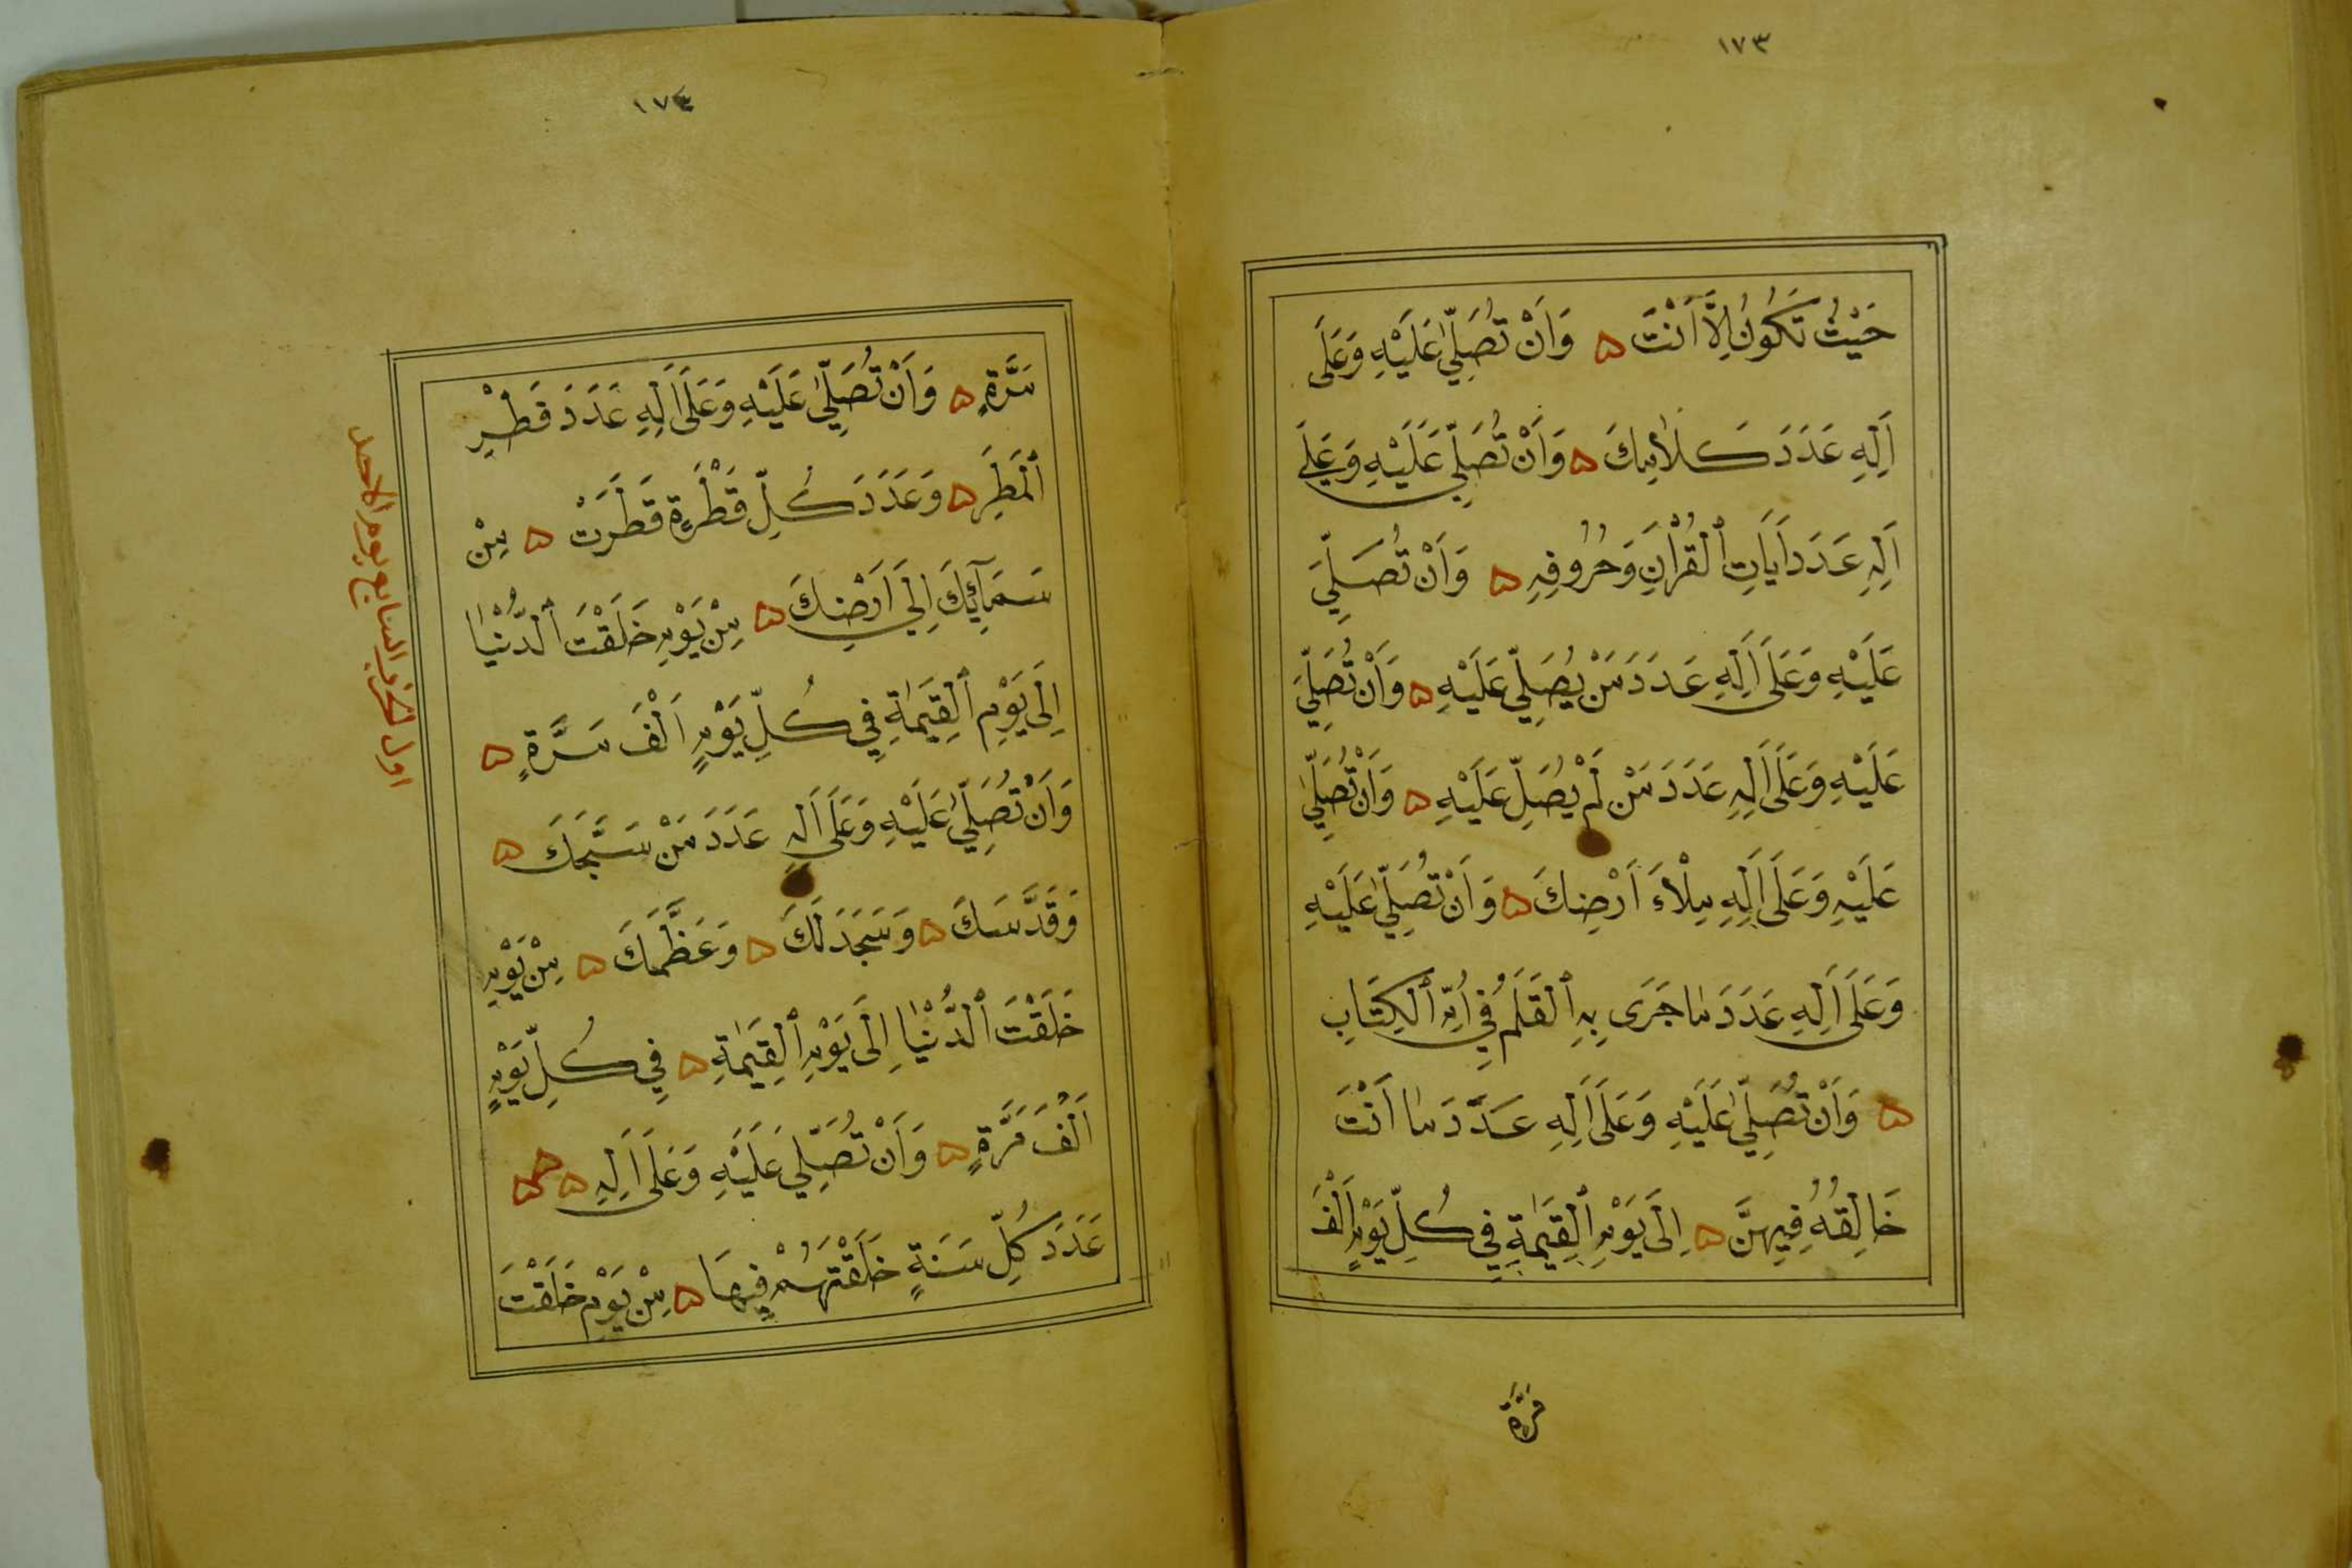 ١٧٣
حَيْثُ تَكُونُ اِلَّا اَنْتَ ۵ وَاَنْ تُصَلِّيَ عَلَيْهِ وَعَلَى
اَلِهِ عَدَدَ كَلَامِكَ ۵ وَاَنْ تُصَلِّيَ عَلَيْهِ وَعَلَى
اَلِهِ عَدَدَ اَيَاتِ الْقُرْاَنِ وَحُرُوفِهِ ۵ وَاَنْ تُصَلِّيَ
عَلَيْهِ وَعَلَى اَلِهِ عَدَدَ مَنْ يُصَلِّي عَلَيْهِ ۵ وَاَنْ تُصَلِّيَ
عَلَيْهِ وَعَلَى اَلِهِ عَدَدَ مَنْ لَمْ يُصَلِّ عَلَيْهِ ۵ وَاَنْ تُصَلِّيَ
عَلَيْهِ وَعَلَى اَلِهِ مِلْاَءَ اَرْضِكَ ۵ وَاَنْ تُصَلِّيَ عَلَيْهِ
وَعَلَى اَلِهِ عَدَدَ مَا جَرَى بِهِ الْقَلَمُ فِي اُمِّ الْكِتَابِ
۵ وَاَنْ تُصَلِّيَ عَلَيْهِ وَعَلَى اَلِهِ عَدَدَ مَا اَنْتَ
خَالِقُهُ فِيهِنَّ ۵ اِلَى يَوْمِ الْقِيَمَةِ فِي كُلِّ يَوْمٍ اَلْفَ
مَرَّةٍ
١٧٤
مَرَّةٍ ۵ وَاَنْ تُصَلِّيَ عَلَيْهِ وَعَلَى اَلِهِ عَدَدَ قَطْرِ
الْمَطَرِ ۵ وَعَدَدَ كُلِّ قَطْرَةٍ قَطَرَتْ ۵ مِنْ
سَمَآئِكَ اِلَى اَرْضِكَ ۵ مِنْ يَوْمِ خَلَقْتَ الدُّنْيَا
اِلَى يَوْمِ الْقِيَمَةِ فِي كُلِّ يَوْمٍ اَلْفَ مَرَّةٍ ۵
وَاَنْ تُصَلِّيَ عَلَيْهِ وَعَلَى اَلِهِ عَدَدَ مَنْ سَبَّحَكَ ۵
وَقَدَّسَكَ ۵ وَسَجَدَ لَكَ ۵ وَعَظَّمَكَ ۵ مِنْ يَوْمِ
خَلَقْتَ الدُّنْيَا اِلَى يَوْمِ الْقِيَمَةِ ۵ فِي كُلِّ يَوْمٍ
اَلْفَ مَرَّةٍ ۵ وَاَنْ تُصَلِّيَ عَلَيْهِ وَعَلَى اَلِهِ ۵ ۵ ۵
عَدَدَ كُلِّ سَنَةٍ خَلَقْتَهُمْ فِيهَا ۵ مِنْ يَوْمِ خَلَقْتَ
اول الحزب السابع يوم الاحد